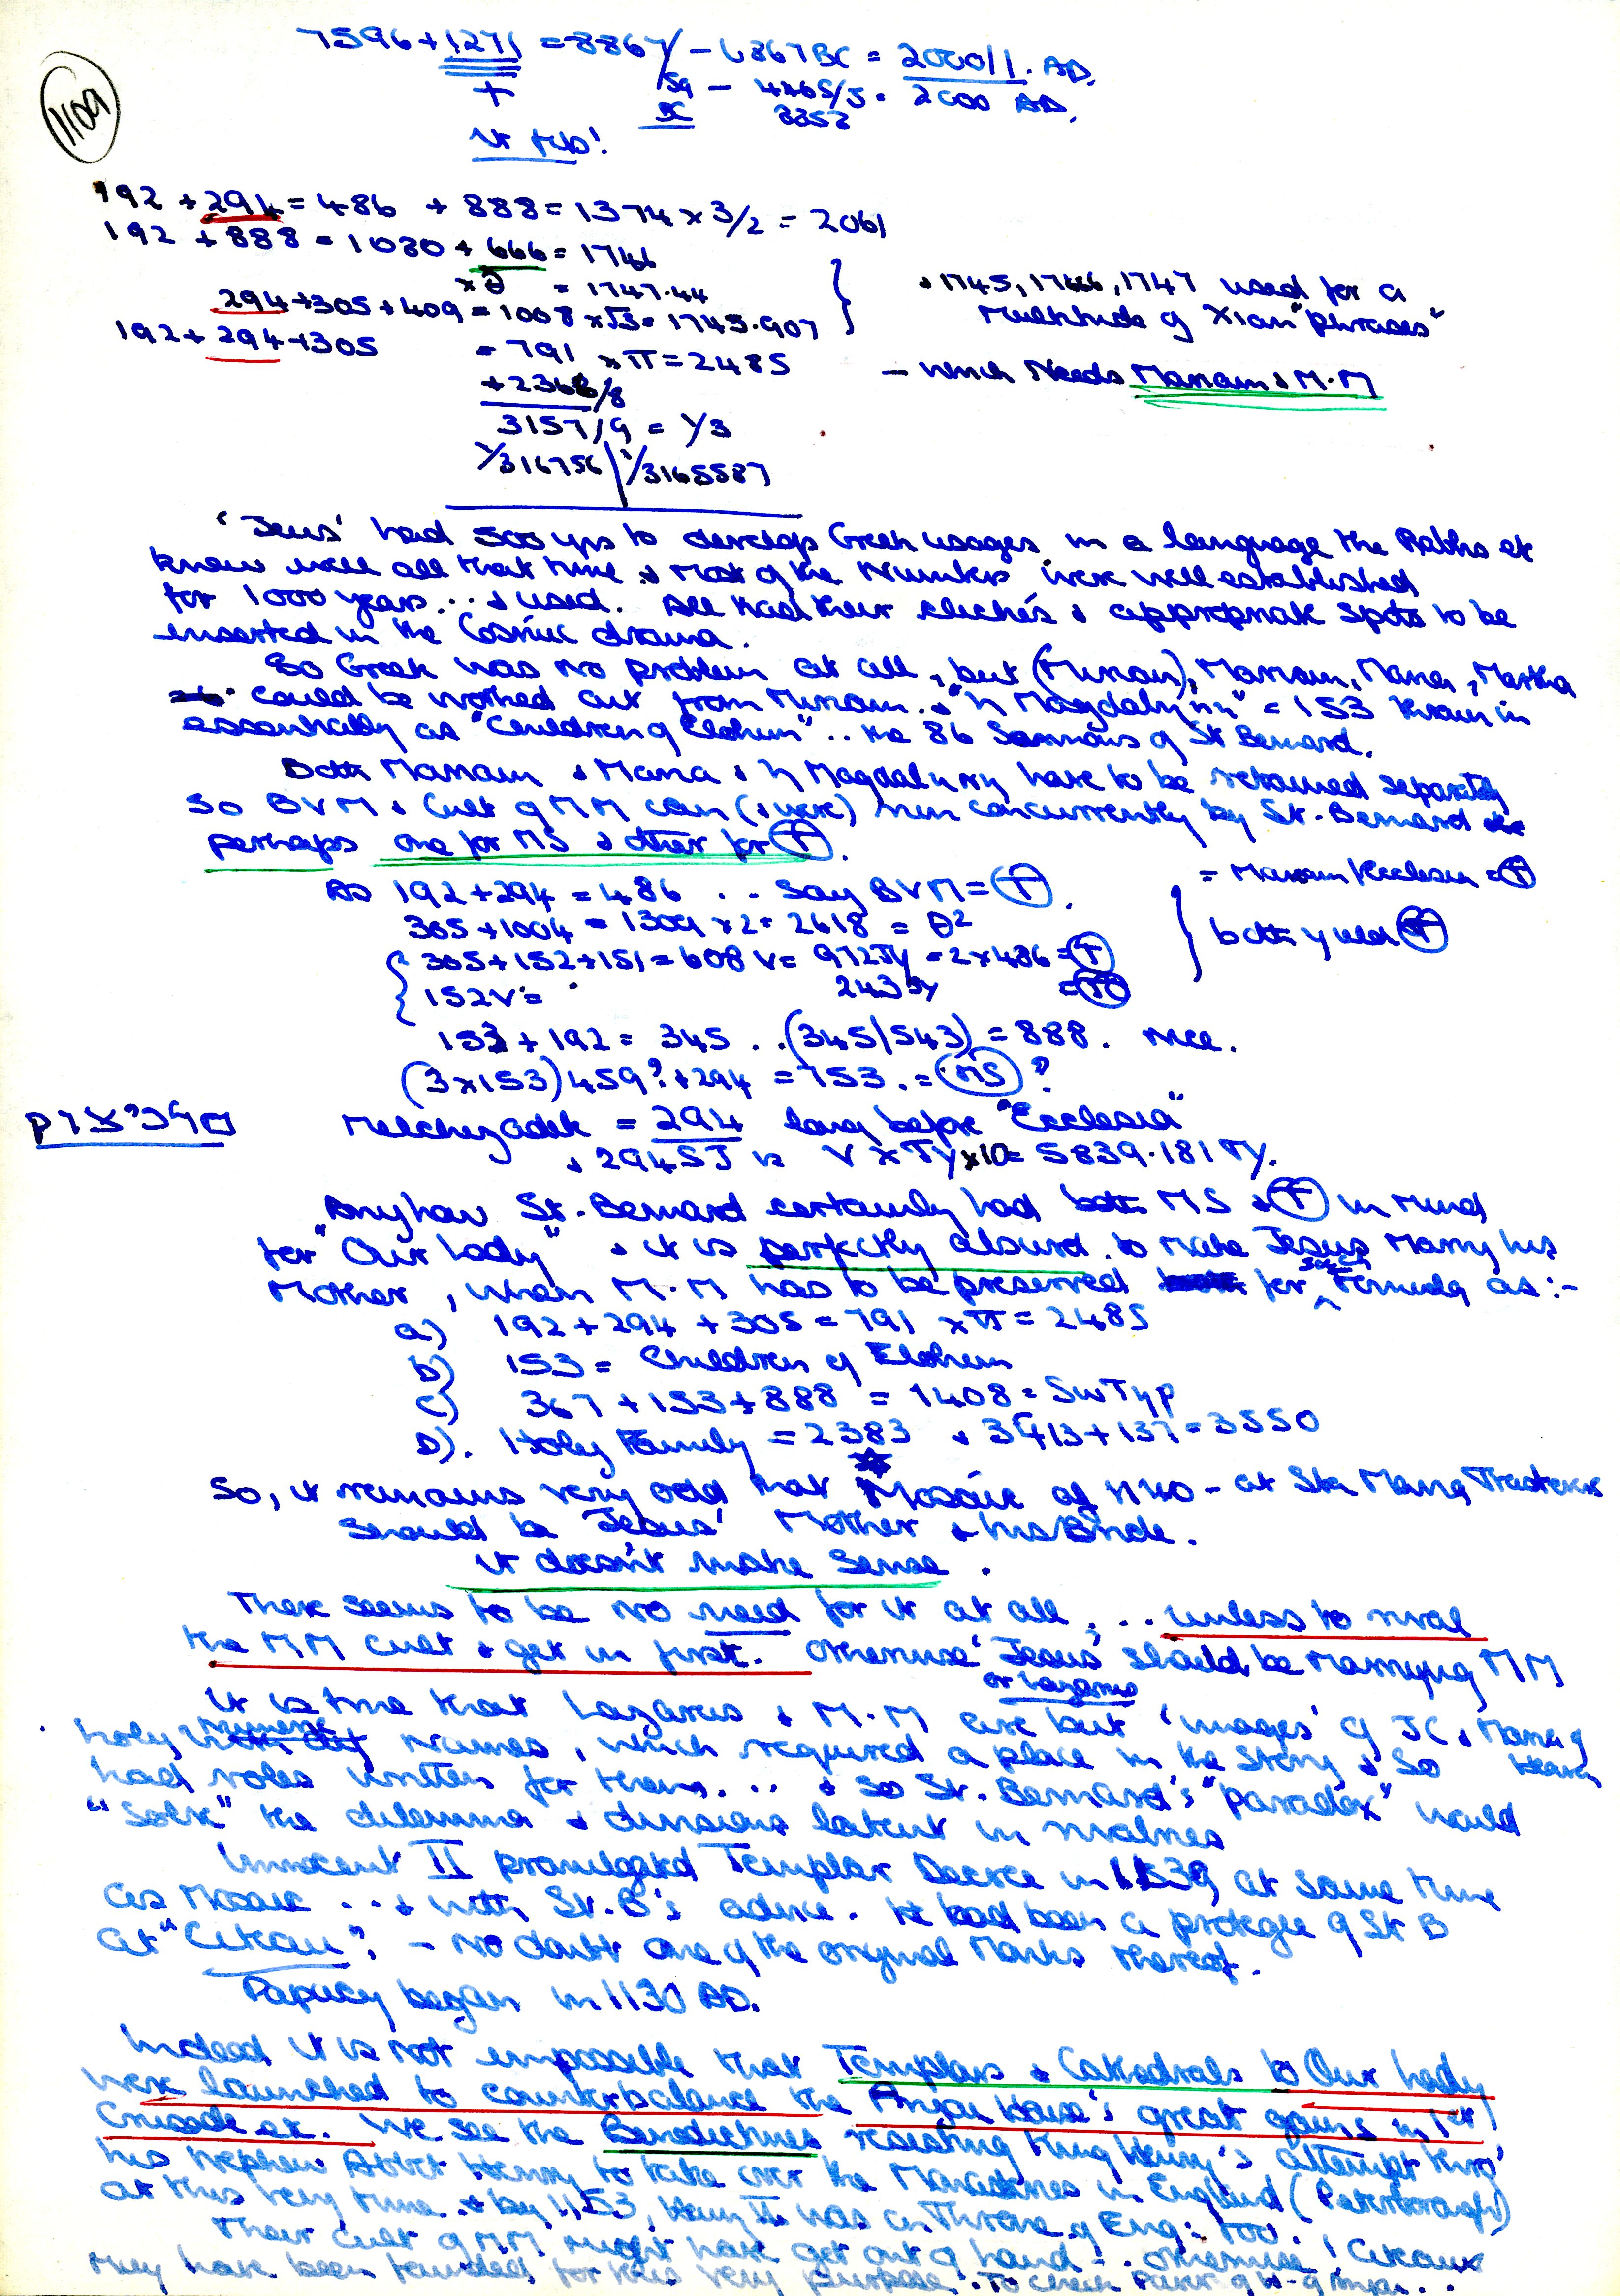 1109
7596 + 1271 = 8867/ - 6867 BC = 2000/1. AD.
+ 59 - 4265/5 = 2000 AD.
3353
192 + 294 = 486 + 888 = 1374 x 3/2 = 2061
192 + 888 = 1080 + 666 = 1746
= 1747.44
294 + 305 + 409 = 1008 x √3 = 1745.907
, 1745, 1746, 1747 used for a
Multitude of Xian "phrases"
192 + 294 + 305 = 791 x π = 2485
- which Needs Mariam & M.M
+ 2368/8
3157/9 = 1/3
1/316756 | 1/3165587
'Jews' had 500 yrs to develop Greek usages in a language the Rabbis etc
knew well all that time & Most of the Numbers were well established
for 1000 years... & used. All had their clichés & appropriate spots to be
inserted in the Cosmic drama.
So Greek was no problem at all, but (Miriam), Mariam, Maria, Martha
could be worked out from Miriam. & "η Magdalηνη" = 153 thrown in
essentially as "Children of Elohim".. the 86 Sermons of St Bernard.
Both Mariam & Maria & η Magdalηνη have to be retained separately
So BVM & Cult of MM can (& were) run concurrently by St. Bernard
perhaps one for MS & other for (T).
As 192 + 294 = 486 .. Say BVM = (T).
= Mariam/Ecclesia = (T)
305 + 1004 = 1309 x 2 = 2618 = θ²
both yield (T)
305 + 152 + 151 = 608 V = 972 Ty = 2 x 486 = (T)
152 V = 243 Ty
153 + 192 = 345 .. (345/543) = 888. Nice.
(3 x 153) 459? + 294 = 753. = (MS)?
Melchezadek = 294 long before "Ecclesia"
& 294 SJ is V x Ty x 10 = 5839.181 Ty.
Anyhow St. Bernard certainly had both MS & (T) in Mind
for "Our Lady" & it is perfectly absurd to Make Jesus Marry his
Mother, when M.M has to be preserved for such Formula as :-
a) 192 + 294 + 305 = 791 x π = 2485
b) 153 = Children of Elohim
c) 367 + 153 + 888 = 1408 = Sw Typ
D). Holy Family = 2383 & 3413 + 137 = 3550
So, it remains very odd that Mosaic of 1140 - at Sta Maria Trastevere
Should be Jesus' Mother & his Bride.
It doesn't make Sense.
There seems to be no need for it at all, .. unless to rival
the MM cult & get in first. Otherwise 'Jesus' should be Marrying MM
or Lazarus
It is true that Lazarus & M.M are but 'images' of JC & Maria of
holy numeric Names, which required a place in the Story & So
had roles written for them... & So St. Bernard's "paradox" would
"Solve" the dilemma & divisions latent in rivalries
Innocent II promulgated Templar Decree in 1139 at same time
as Mosaic ... & with St. B's advice. He had been a protegee of St B
at "Citeau", - no doubt one of the original Monks thereof.
Papacy began in 1130 AD.
Indeed it is not impossible that Templars & Cathedrals to Our Lady
were launched to counterbalance the Anjou House's great gains in 1st
Crusade etc. We see the Benedictines resisting King Henry's attempt thro'
his Nephew Abbot Henry to take over the Monasteries in England (Peterborough)
at this very time & by 1153, Henry II was on Throne of Eng: too.
Their Cult of MM might have got out of hand - . otherwise! Citeaux
May have been founded for this very purpose! .. To check